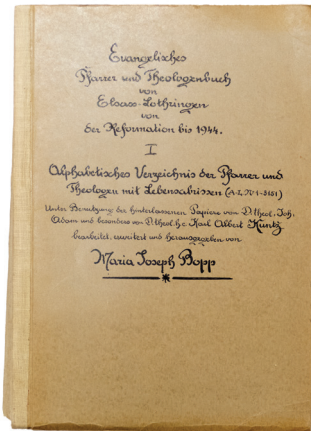 Evangelisches
Pfarrer und Theologenbuch
von
Elsass-Lothringen
von
der Reformation bis 1944.
I
Alphabetisches Verzeichnis der Pfarrer und
Theologen mit Lebensabrissen (A-L, Nr 1-3151)
Unter Benutzung der hinterlassenen Papiere von D. theol. Joh.
Adam und besonders von D. theol. h. c. Karl Albert Kuntz
bearbeitet, erweitert und herausgegeben von
Maria Joseph Bopp